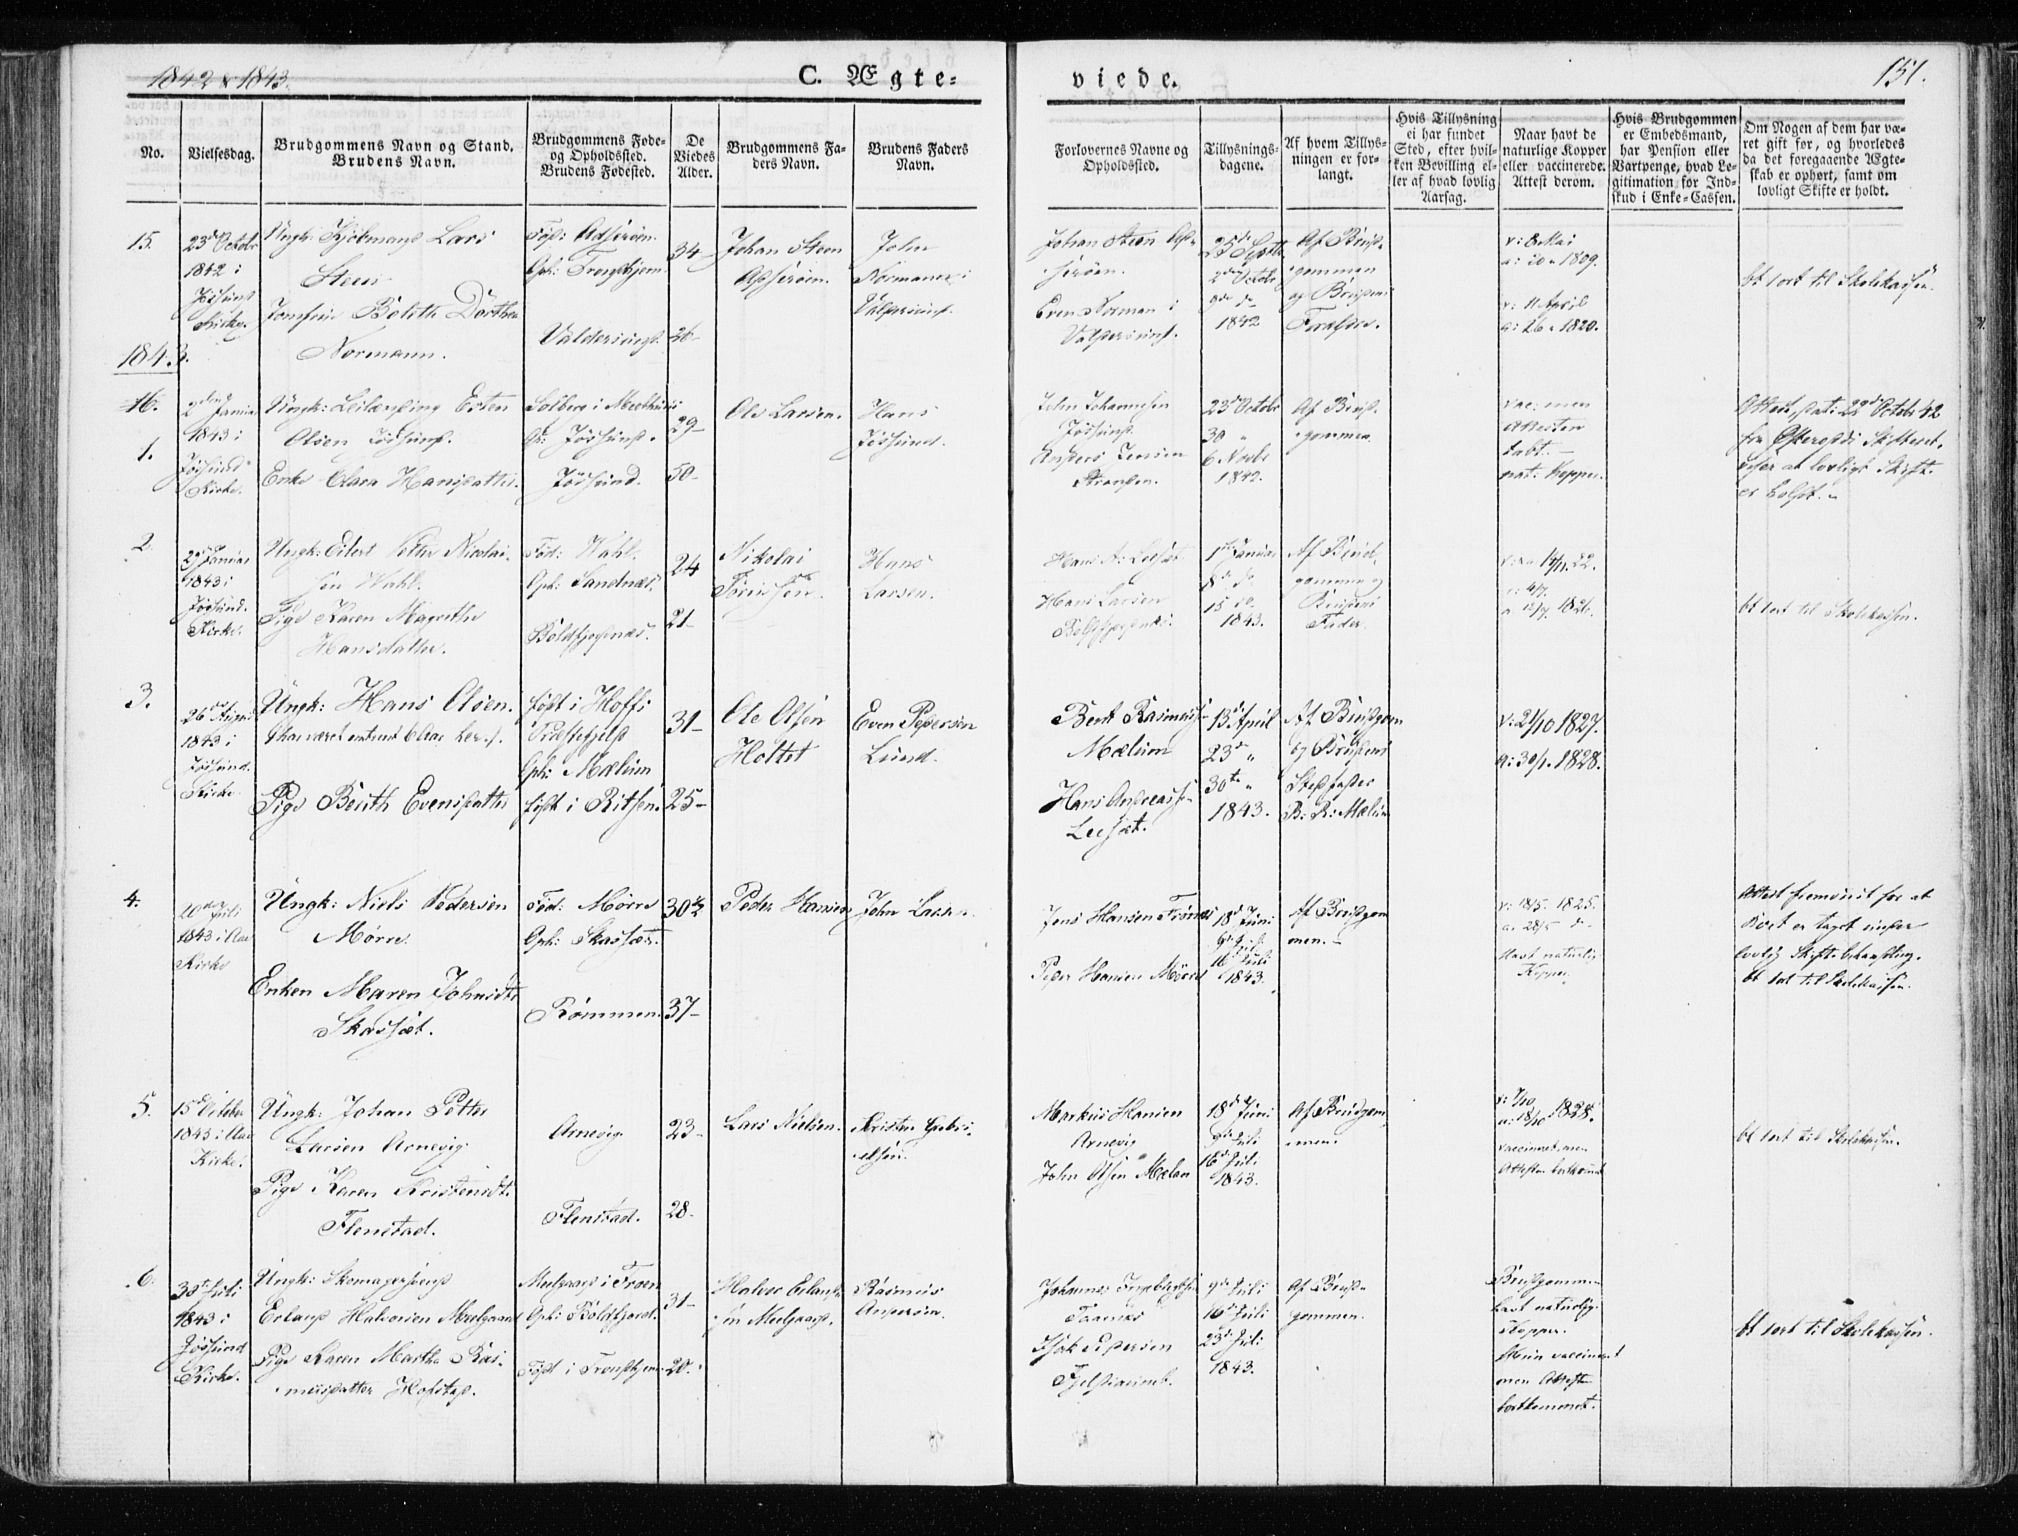 1842 & 1843.
C. Ægte=
viede.
151.
No.
Vielsesdag.
Brudgommens Navn og Stand.
Brudens Navn.
Brudgommens Føde-
og Opholdssted.
Brudens Fødested.
De
Viedes
Alder.
Brudgommens Fa-
ders Navn.
Brudens Faders
Navn.
Forlovernes Navne og
Opholdssted.
Tillysnings-
dagene.
Af hvem Tillys-
ningen er for-
langt.
Hvis Tillysning
ei har fundet
Sted, efter hvil-
ken Bevilling el-
ler af hvad lovlig
Aarsag.
Naar havt de
naturlige Kopper
eller vaccinerede.
Attest derom.
Hvis Brudgommen
er Embedsmand,
har Pension eller
Vartpenge, hvad Le-
gitimation for Ind-
skud i Enke-Cassen.
Om Nogen af dem har væ-
ret gift før, og hvorledes
da det foregaaende Ægte-
skab er ophørt, samt om
lovligt Skifte er holdt.
15.
23d Octobr
1842 i
Jøssund
Kirke.
Ungk: Kjøbmand Lars
Steen
Jomfru Bolette Dorthea
Normann.
Opl: Trondhjem
Valdersund
34-
26-
Johan Steen
John
Normann i
Valdersund.
Johan Steen
Even Norman i
Valdersund.
25de Septb
2den Octobr
9de d
1842
Af Brud-
gommen
og Brudens
Forældre.
v: 8 Mai
a: 20 " 1809.
v: 11 April
a: 26 " 1820.
bt 1 ort til Skolekassen.
1843.
16.
1.
2den Januar
1843 i
Jøssund
Kirke.
Ungk: Leilænding Esten
Olsen Jøssund.
Enke Clara Hansdatter.
Solberg i Melhuus
Op: Jøssund.
Jøssund.
29-
50-
Ole Larsen.
Hans
Jøssund.
John Johannesen
Jøssund
Anders Jensen
23d Octobr
30 "
6 Novbr
1842.
Af Brud-
gommen.
vac: men
Attesten
tabt. -
nat: Kopper.
Attest, dat: 22d Octobr 42
fra Skifteret,
at lovligt Skifte
er holdt.
2.
Januar
1843 i
Jøssund.
Kirke.
Ungk: Eilert Petter Nicolai-
sen Wahl.
Pige Karen Magrethe
Hansdatter.
Fød: Wahl.
Oph: Sandnæs.
Boldfjordnæs.
24
21-
Nikolai
Hans
Larsen.
Hans A: Leesæt
Hans Larsen
1ste Januar
8de d
15 do.
1843.
Af Brud-
gommen og
Brudens
Fader.
1826.
bt 1 ort til Skolekassen.
3.
26de
1843 i
Jøssund.
Kirke
Ungk: Hans Olsen.
Pige Berith Evensdatter
født i Hoffs
Præstegjeld
Oph: Mælum
født i Ritsen.
31-
25-
Ole Olsen
Holtet
Even Pedersen
Lund.
Bent Rasmuss
Mælum
Hans Andreass
Leesæt.
13de April
23de "
30te "
1843.
Af Brudgom
og Brudens
Stedfader
B: R: Mælum
v: 21/10 1827.
a: 30/1 1828.
4.
Juli
1843 i Aae
Kirke
Ungk: Niels Pedersen
Mørre.
Enken Maren Johnsdt
Skassæt.
Fød: Mørre
Oph: Skassæt.
Rømmen.
30½
37-
Peder Hansen
John Larsen
Jens Hansen
Peder Hansen Mørre
18d Juni
9de Juli
16d Juli
1843.
Af Brudgom
men. -
v: 18/5 1825.
a. 28/5 d
Havt naturlig
Kopper.
Attest fremviist for at
Boet er taget under
lovlig Skiftebehandling.
bt 1 ort til Skolekassen.
5.
15de October
1843 i Aae
Kirke.
Ungk: Johan Petter
Larsen Arnevig
Pige Karen Kristensdt
Flenstad.
Arnevig
Flenstad.
23-
28.
Lars Nielsen.
Kristen Gabri-
elsen.
Markus Hansen
Arnevig
John Olsen Mælan
18d Juni
9de Juli
16d Juli
1843.
Af Brudgom
men.
v: 7/10
a: 18/10 1828.
vaccineret, men
Attesten bortkommet
bt 1 ort til Skolekassen.
6.
30te Juli
1843 i
Jøssund
Kirke.
Ungk: Skomagersvend
Erland Halvorsen Melgaard
Pige Karen Martha Ras-
musdatter Hofstad.
Oph: Boldfjord.
Født i Trondhjem.
31-
20.
Halvor Erland-
sen Melgaard.
Rasmus
Andersen.
Johannes Ingebrigtsen
Isak Pedersen
9de Juli
16d Juli
23d Juli
1843.
Af Brud-
gommen.
Brudgommen
havt naturlig
Kopper.
vaccineret
men Attesten
bortkommet.
bt 1 ort til Skolekassen.